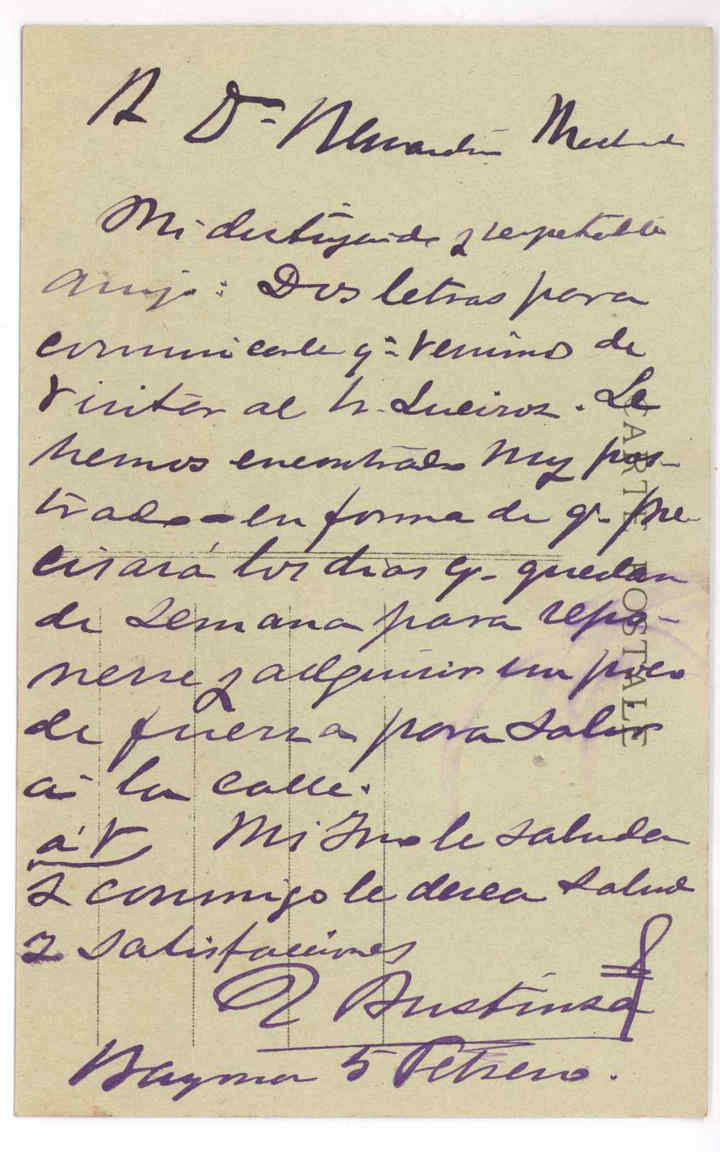 A Dn Bernardino Machado
Mi distinguido y respetable
amigo: Dos letras para
comunicarle q. venimos de
visitar al Sr. Queiroz. Le
hemos encontrado muy pos-
trado en forma de q. pre-
cisará los dias q. quedan
de semana para repo-
nerse y adquirir un poco
de fuerza para salir
á la calle.
á V. Mi Ino le saluda
y conmigo le desea salud
y satisfacciones
Austinsa
Bayona 5 Febrero.
CARTE POSTALE